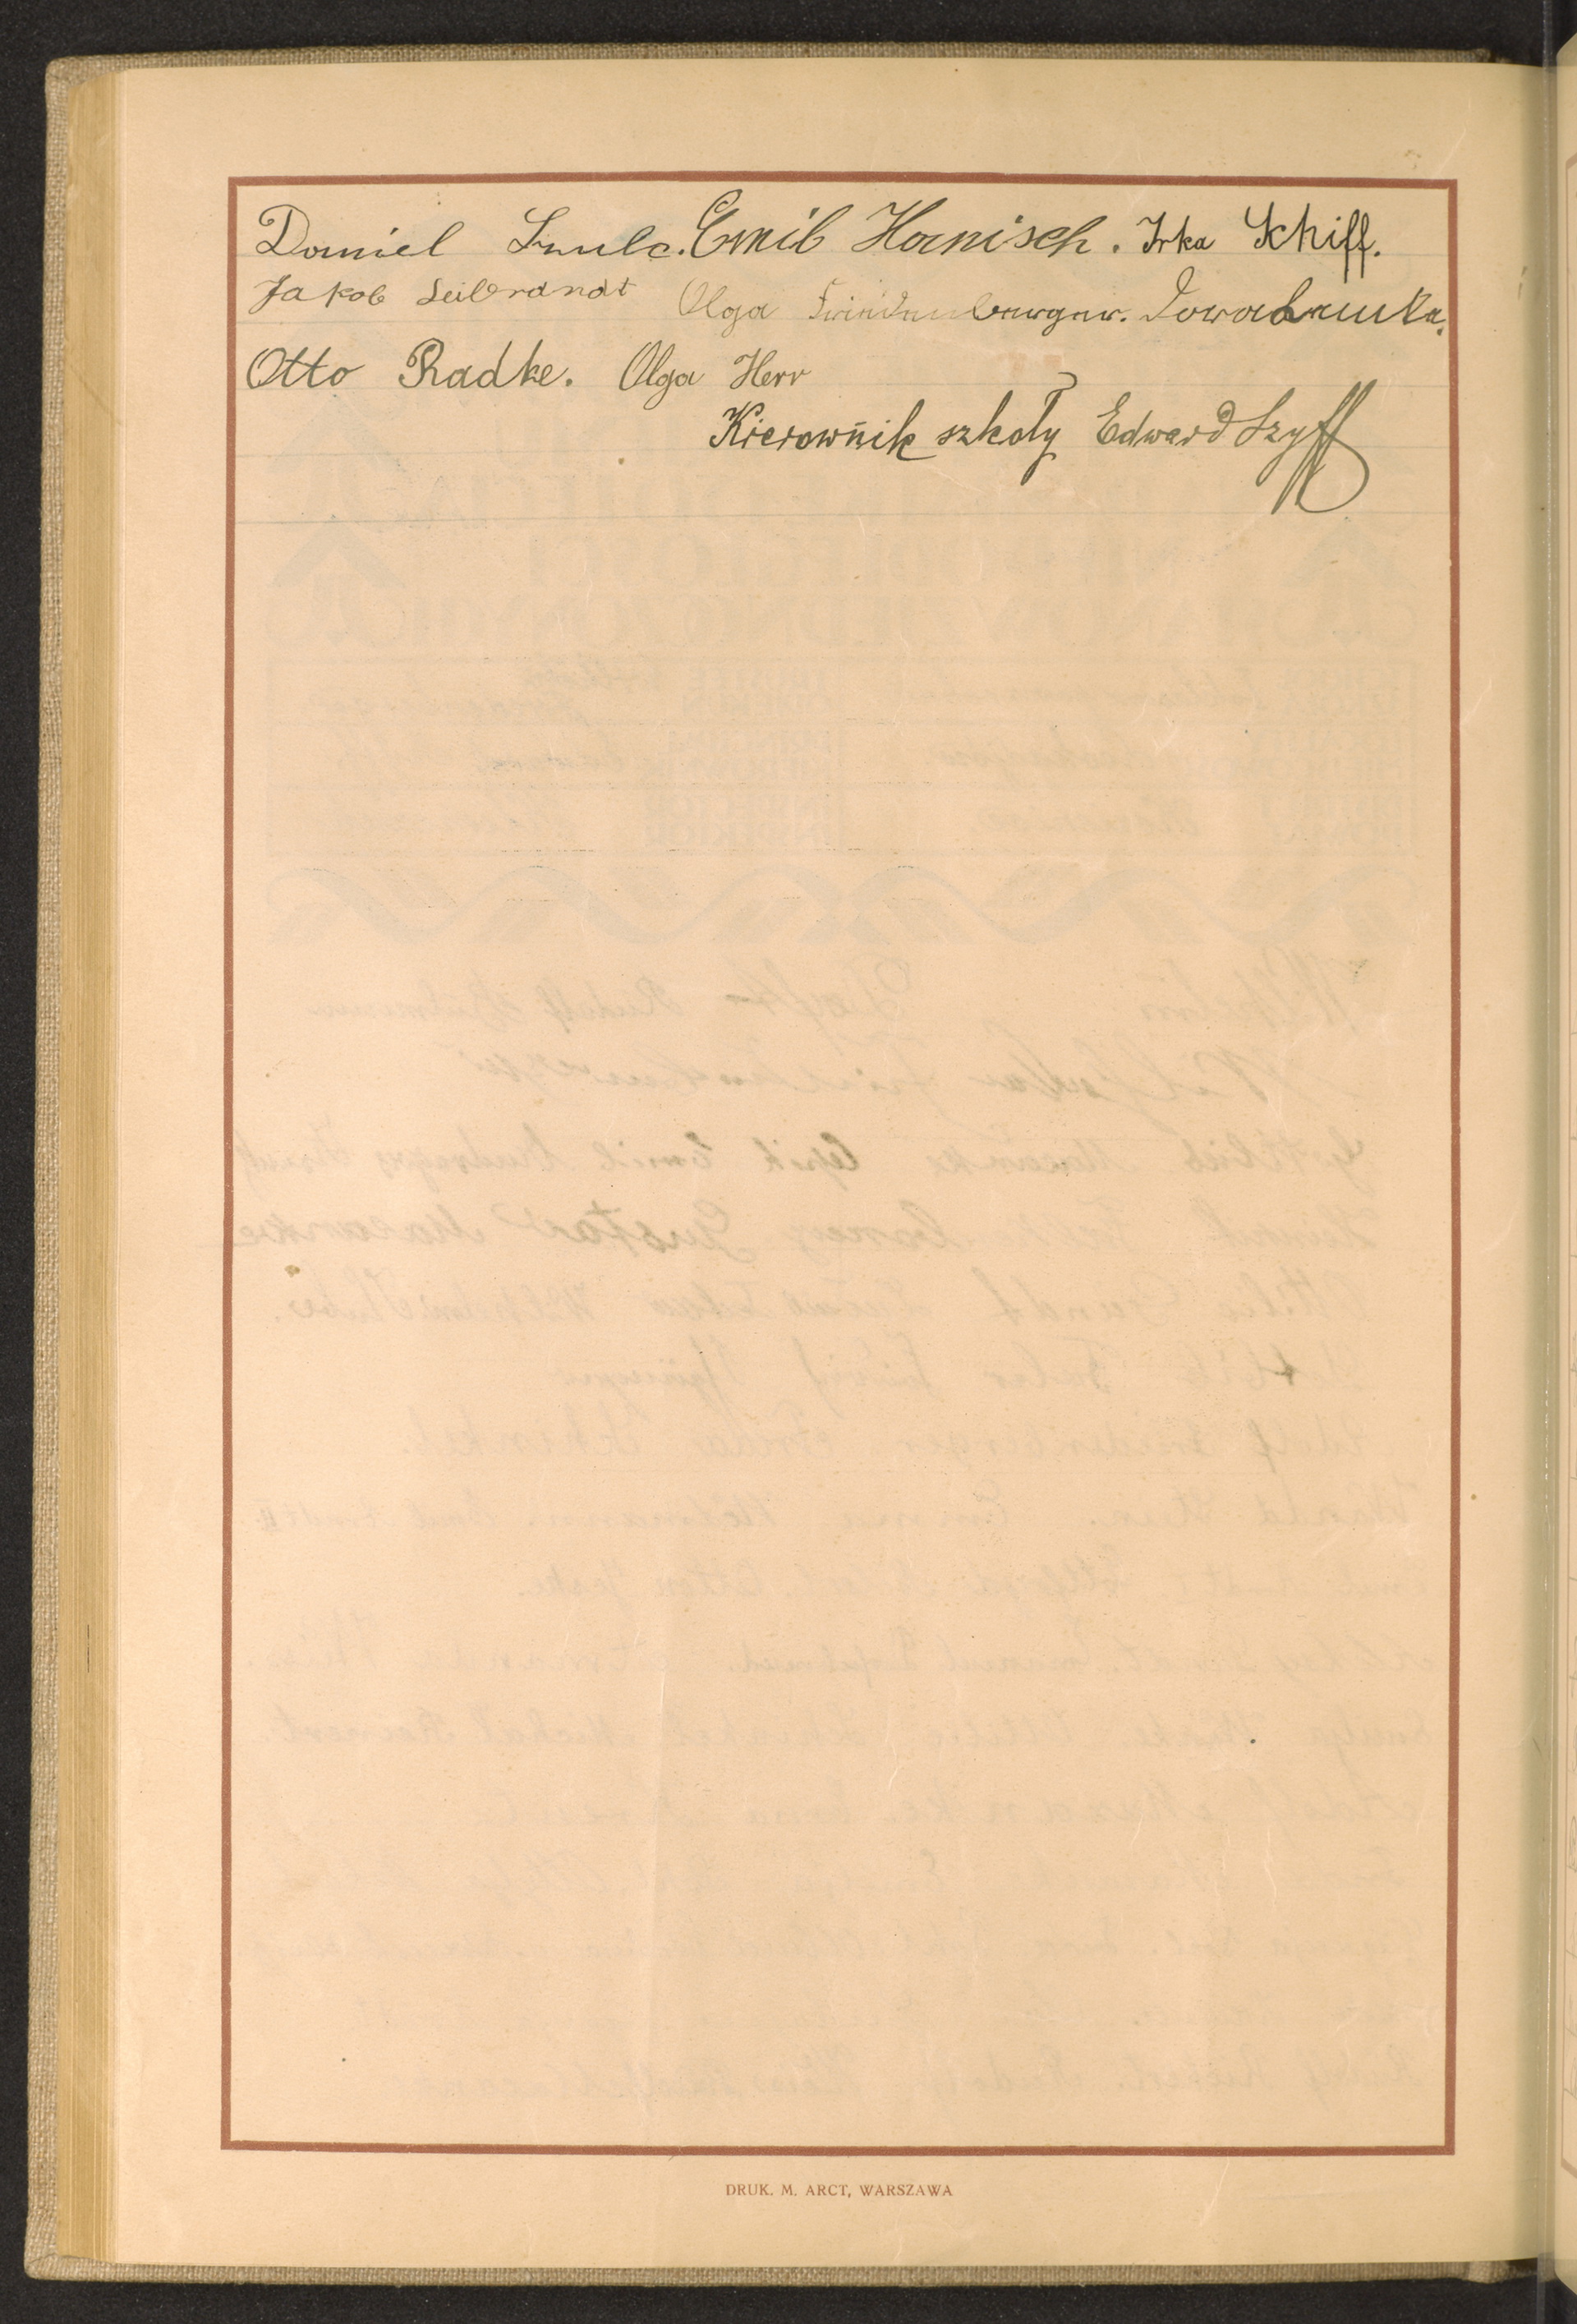 Daniel Szulc. Emil Hanisch. Irka Schiff.
Jakob Leibrandt Olga
Otto Radke. Olga Herr
Kierownik szkoły Edward Szyff
DRUK. M. ARCT, WARSZAWA